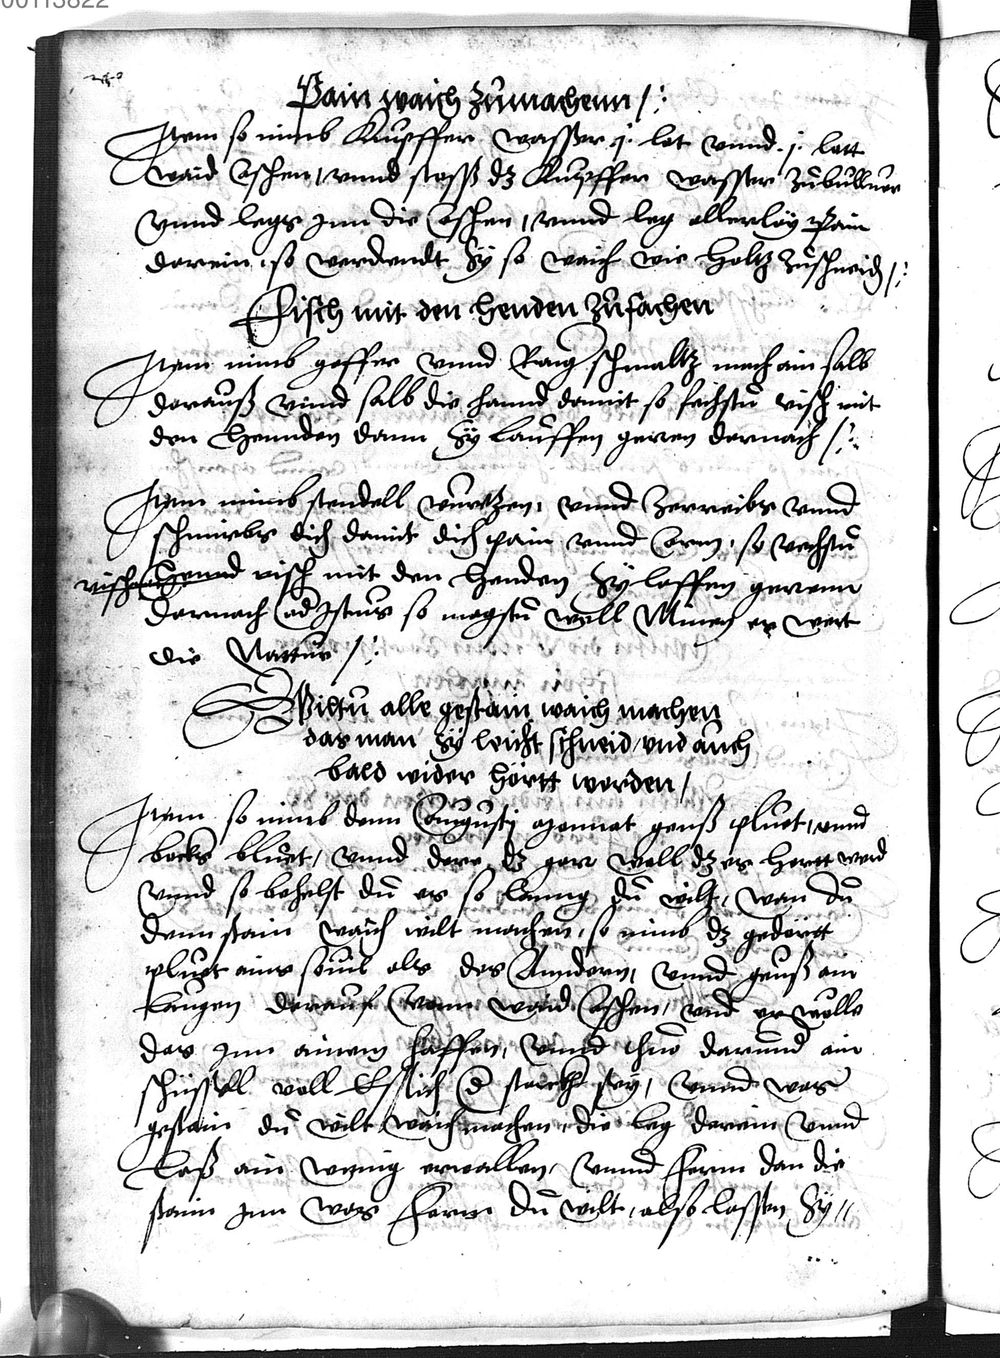 00113822
Pain waich Zumachenn /:
Item so nimb Kupffer wasser j. lot vnnd .j. lott
waid Eschen, vnnd stoss dz Kupffer wasser Zu bulluer
vnnd legs jnn die Eschen, vnnd leg allerley Pain
darein, so werdendt Sy so waich wie holtz Zuschneid /:
Fisch mit den henden Zufachen
Item nimb gaffer vnnd Raig schmaltz mach ain salb
darauß vnnd salb die hannd damit so fachstu visch mit
den Hennden dann Sy lauffen geren darnach /:
Item nimb stendell wurtzen, vnnd Zerreibs vnnd
schmirbs dich damit dich pain vnnd Erm, so vechstu
visch mit den Henden Sy loffen gerenn
darnach so magstu woll er wert
die Nattur /:
Wiltu alle gestain waich machen
das man Sy leicht schneid vnd auch
bald wider hörtt werden /
Item so nimb denn Augusti monnat genß pluet, vnnd
bocks bluet, vnnd dere dz gar woll dz es hertt werd
vnnd so behelst du es so lanng du wilt, wan du
denn stain waich wilt machen, so nimb dz gedörtt
pluet ains souil als des Anndern, vnnd geuß ain
laugen darauf vonn waid Eschen, vnd er wölle
das jnn ainem haffen, vnnd thuo darund ain
schüssel voll Essich d starckh sey, vnnd was
gestain du wilt waich machen, die leg darein vnnd
laß ain wenig erwallen, vnnd form dan die
stain jnn was form du wilt, also lassen Sy //